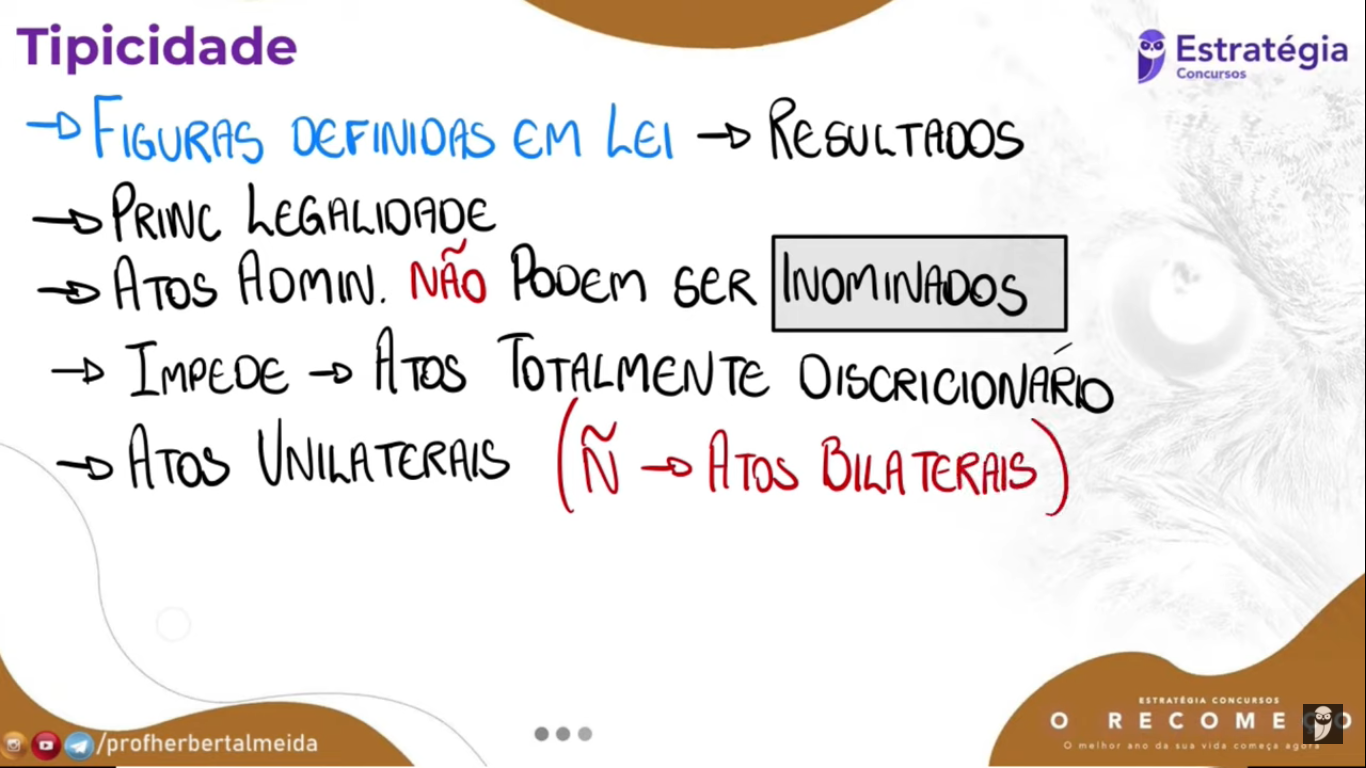 Tipicidade
Estratégia
Concursos
→ FIGURAS DEFINIDAS EM LEI → RESULTADOS
→ PRINC LEGALIDADE
→ ATOS ADMIN. NÃO PODEM SER INOMINADOS
→ IMPEDE → ATOS TOTALMENTE DISCRICIONÁRIO
→ ATOS UNILATERAIS (Ñ → ATOS BILATERAIS)
/profherbertalmeida
ESTRATÉGIA CONCURSOS
O RECOMEÇO
O melhor ano da sua vida começa agora